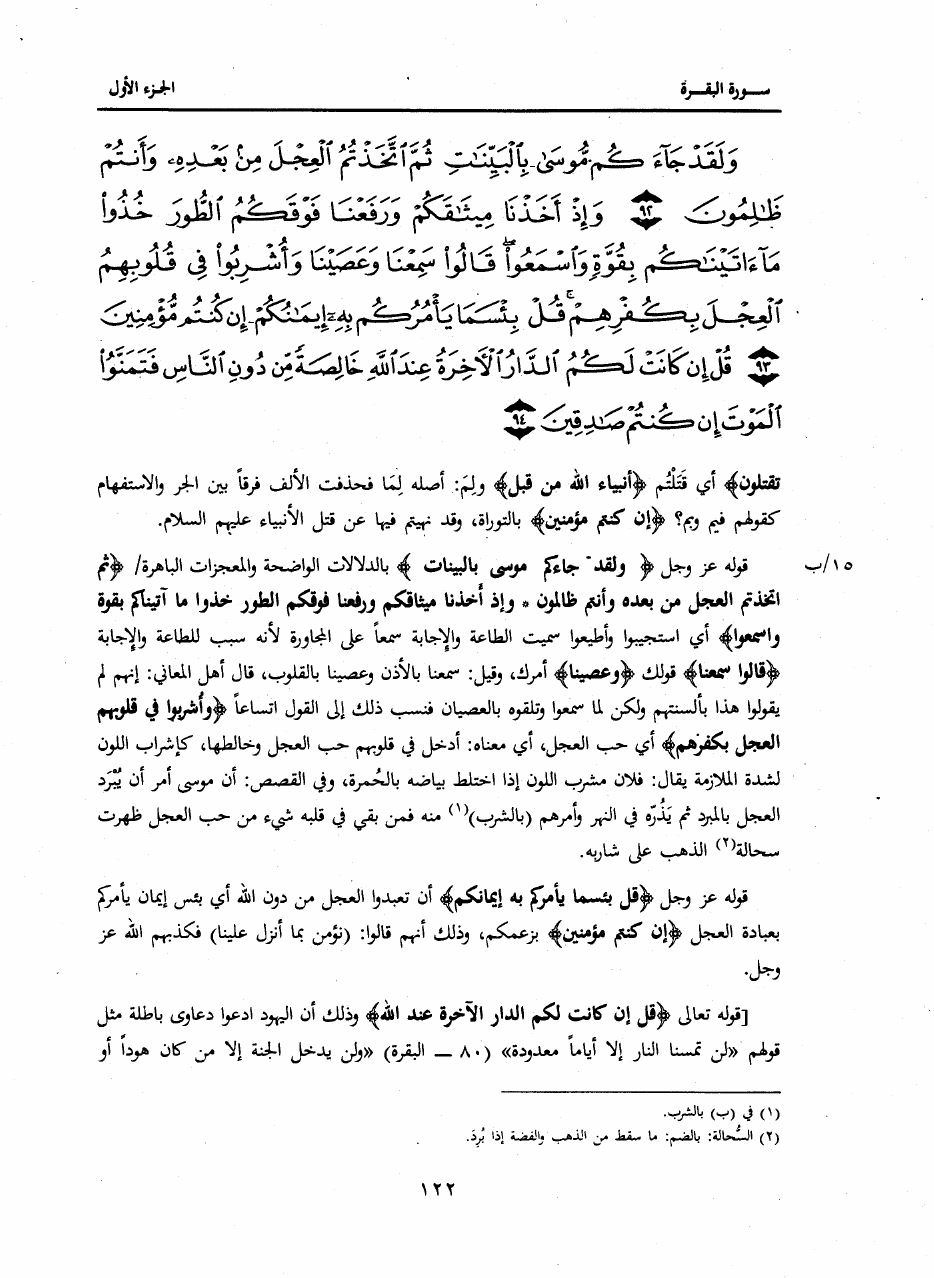 ســورة البقــرة
الجزء الأول
وَلَقَدْ جَآءَكُم مُّوسَىٰ بِٱلْبَيِّنَٰتِ ثُمَّ ٱتَّخَذْتُمُ ٱلْعِجْلَ مِنۢ بَعْدِهِۦ وَأَنتُمْ
ظَٰلِمُونَ ٩٢ وَإِذْ أَخَذْنَا مِيثَٰقَكُمْ وَرَفَعْنَا فَوْقَكُمُ ٱلطُّورَ خُذُوا۟
مَآ ءَاتَيْنَٰكُم بِقُوَّةٍ وَٱسْمَعُوا۟ ۖ قَالُوا۟ سَمِعْنَا وَعَصَيْنَا وَأُشْرِبُوا۟ فِى قُلُوبِهِمُ
ٱلْعِجْلَ بِكُفْرِهِمْ ۚ قُلْ بِئْسَمَا يَأْمُرُكُم بِهِۦٓ إِيمَٰنُكُمْ إِن كُنتُم مُّؤْمِنِينَ
٩٣ قُلْ إِن كَانَتْ لَكُمُ ٱلدَّارُ ٱلْءَاخِرَةُ عِندَ ٱللَّهِ خَالِصَةً مِّن دُونِ ٱلنَّاسِ فَتَمَنَّوُا۟
ٱلْمَوْتَ إِن كُنتُمْ صَٰدِقِينَ ٩٤
تقتلون﴾ أي قَتَلْتُم ﴿أنبياء الله من قبل﴾ ولِمَ: أصله لِمَا فحذفت الألف فرقاً بين الجر والاستفهام
كقولهم فيم وبم؟ ﴿إن كنتم مؤمنين﴾ بالتوراة، وقد نهيتم فيها عن قتل الأنبياء عليهم السلام.
١٥/ب
قوله عز وجل ﴿ولقد جاءكم موسى بالبينات﴾ بالدلالات الواضحة والمعجزات الباهرة/ ﴿ثم
اتخذتم العجل من بعده وأنتم ظالمون * وإذ أخذنا ميثاقكم ورفعنا فوقكم الطور خذوا ما آتيناكم بقوة
واسمعوا﴾ أي استجيبوا وأطيعوا سميت الطاعة والإجابة سمعاً على المجاورة لأنه سبب للطاعة والإجابة
﴿قالوا سمعنا﴾ قولك ﴿وعصينا﴾ أمرك، وقيل: سمعنا بالأذن وعصينا بالقلوب، قال أهل المعاني: إنهم لم
يقولوا هذا بألسنتهم ولكن لما سمعوا وتلقوه بالعصيان فنسب ذلك إلى القول اتساعاً ﴿وأُشربوا في قلوبهم
العجل بكفرهم﴾ أي حب العجل، أي معناه: أدخل في قلوبهم حب العجل وخالطها، كإشراب اللون
لشدة الملازمة يقال: فلان مشرب اللون إذا اختلط بياضه بالحُمرة، وفي القصص: أن موسى أمر أن يُبْرَد
العجل بالمبرد ثم يَذُرّه في النهر وأمرهم (بالشرب)(١) منه فمن بقي في قلبه شيء من حب العجل ظهرت
سحالة(٢) الذهب على شاربه.
قوله عز وجل ﴿قل بئسما يأمركم به إيمانكم﴾ أن تعبدوا العجل من دون الله أي بئس إيمان يأمركم
بعبادة العجل ﴿إن كنتم مؤمنين﴾ بزعمكم، وذلك أنهم قالوا: (نؤمن بما أنزل علينا) فكذبهم الله عز
وجل.
[قوله تعالى ﴿قل إن كانت لكم الدار الآخرة عند الله﴾ وذلك أن اليهود ادعوا دعاوى باطلة مثل
قولهم «لن تمسنا النار إلا أياماً معدودة» (٨٠ ــ البقرة) «ولن يدخل الجنة إلا من كان هوداً أو
(١) في (ب) بالشرب.
(٢) السُّحالة: بالضم: ما سقط من الذهب والفضة إذا بُرِدَ.
١٢٢